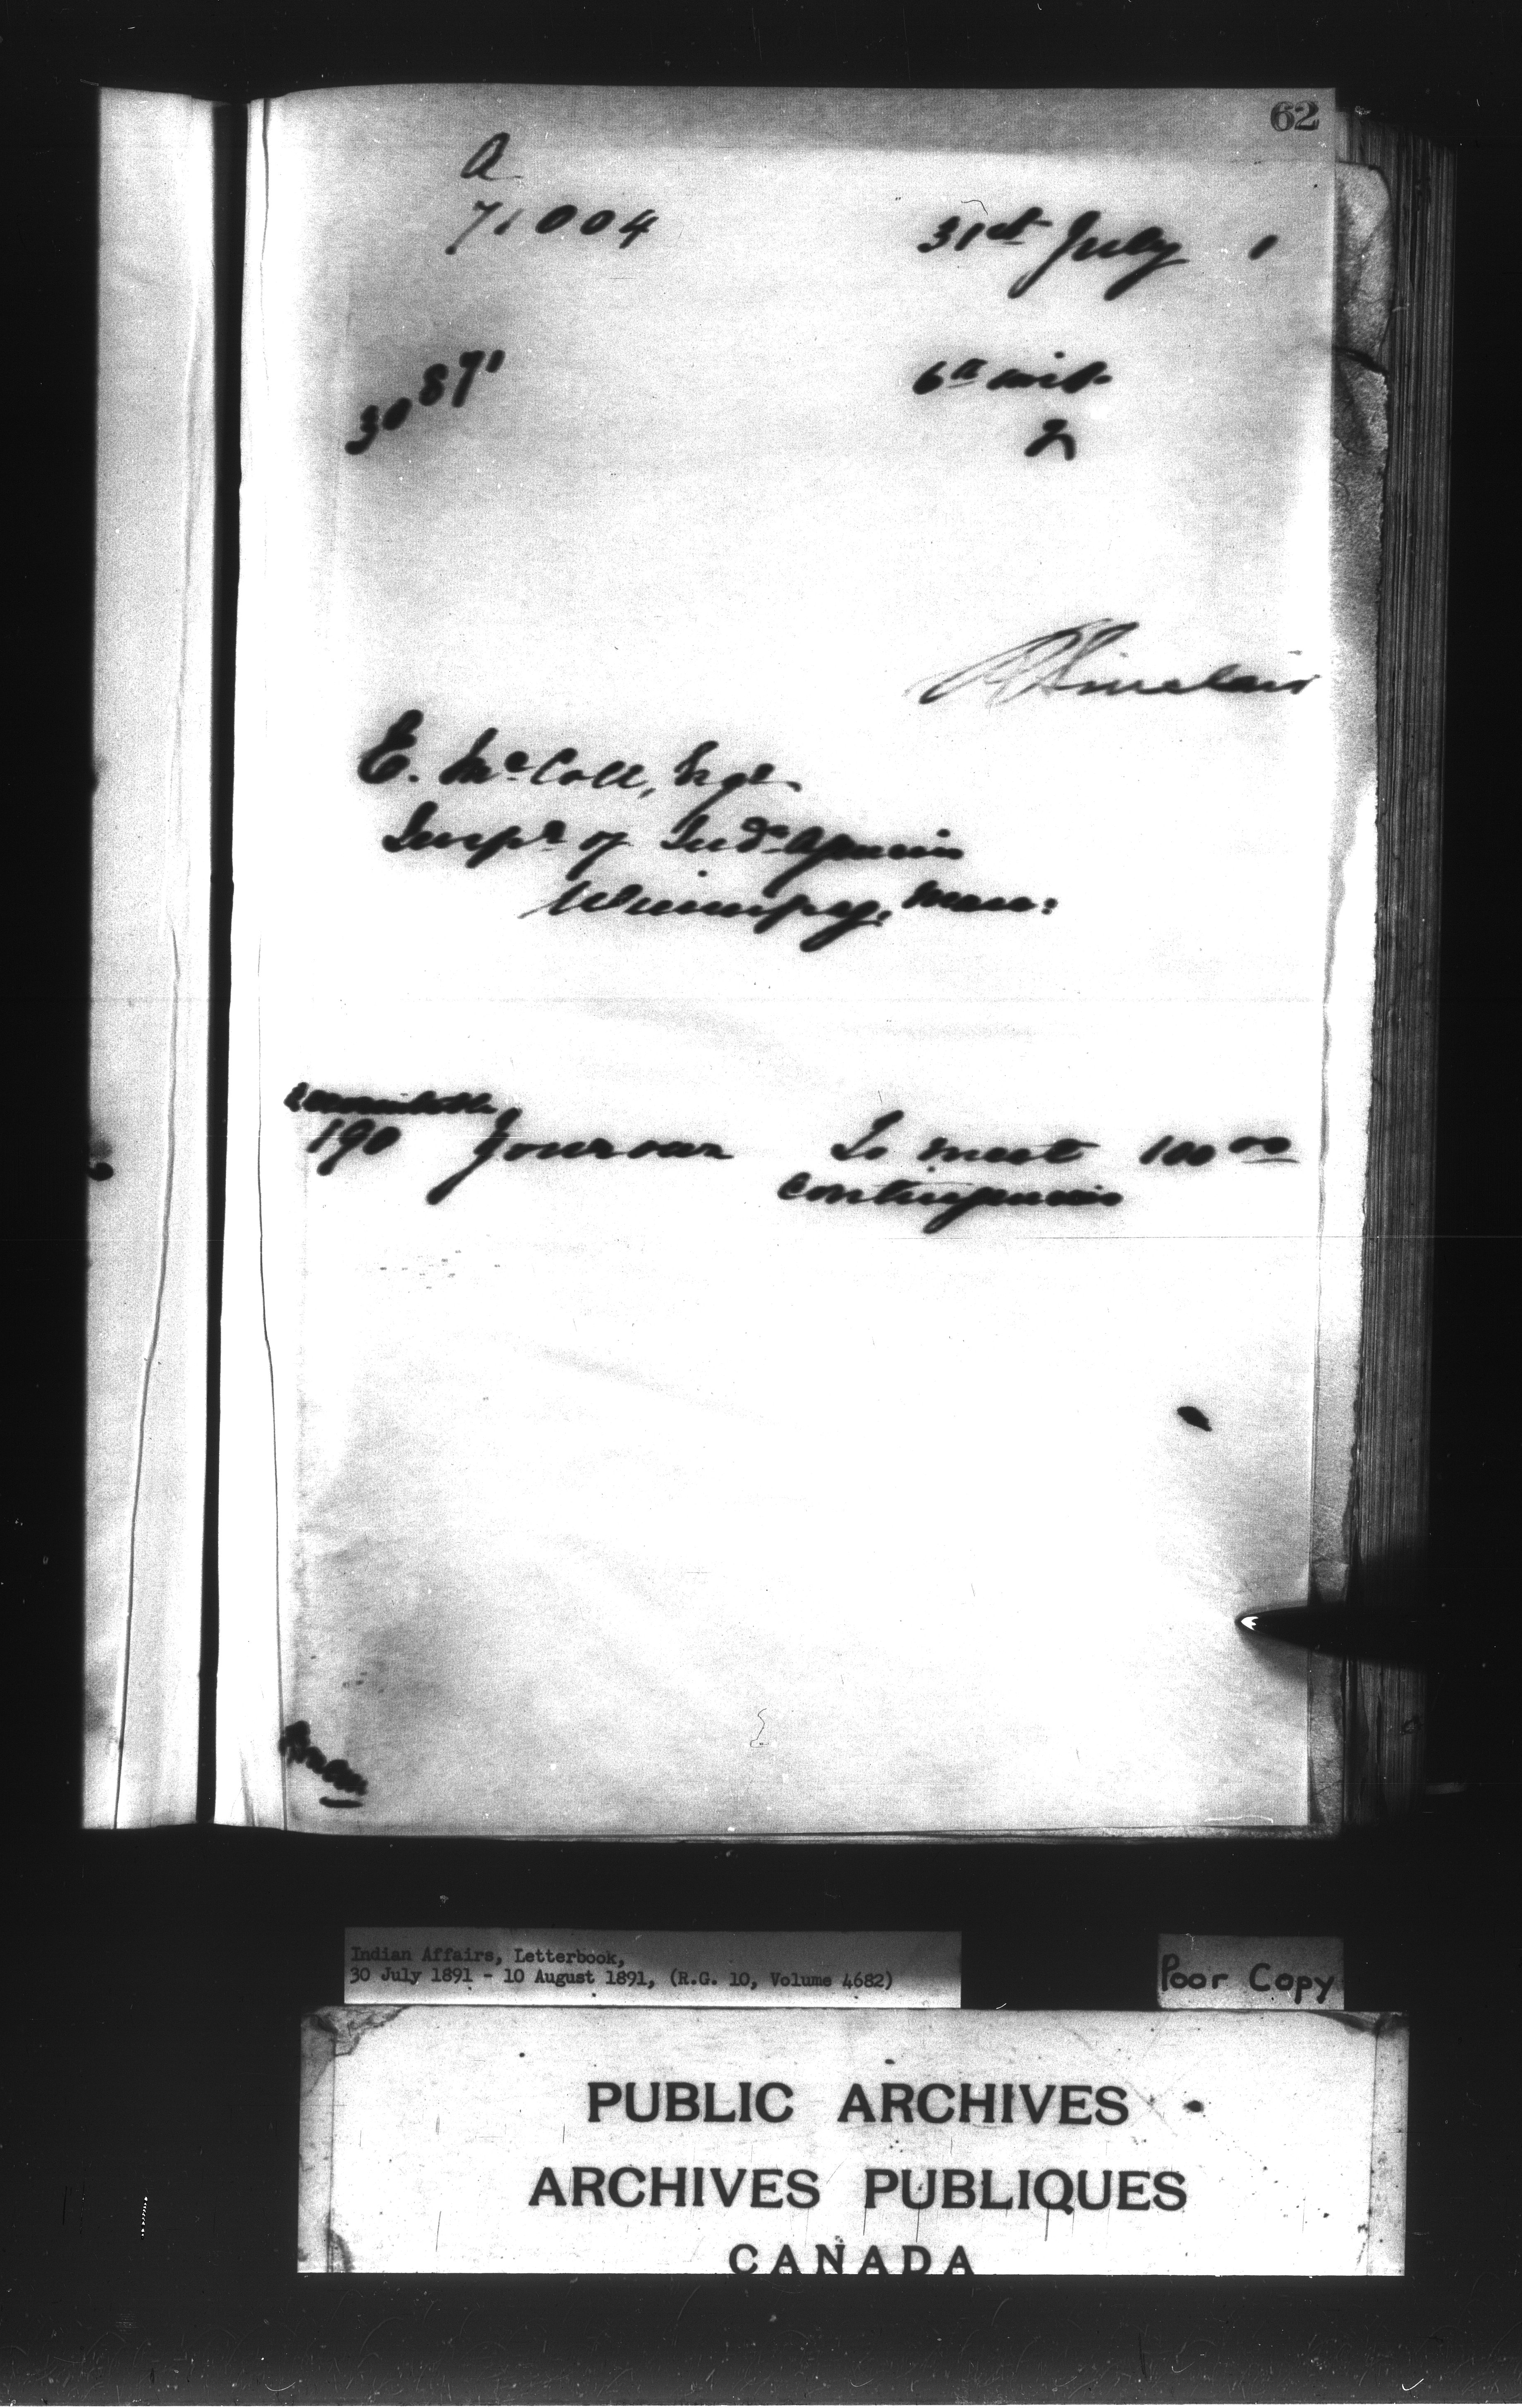 62
A
71004 31st July 1
30871 6th inst.
Sinclair
E. McColl, Esqr.
Inspr. of Indn. Agencies
Winnipeg, Man:
190 Yourour To meet 100 00
Contingencies
Indian Affairs, Letterbook,
30 July 1891 - 10 August 1891, (R.G. 10, Volume 4682)
Poor Copy
PUBLIC ARCHIVES
ARCHIVES PUBLIQUES
CANADA